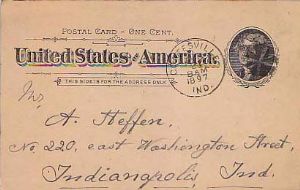 POSTAL CARD - ONE CENT.
United States of America.
THIS SIDE IS FOR THE ADDRESS ONLY.
8 AM
1897
IND.
Mr.
A. Steffen,
No. 220, east Washington Street,
Indianapolis, Ind.